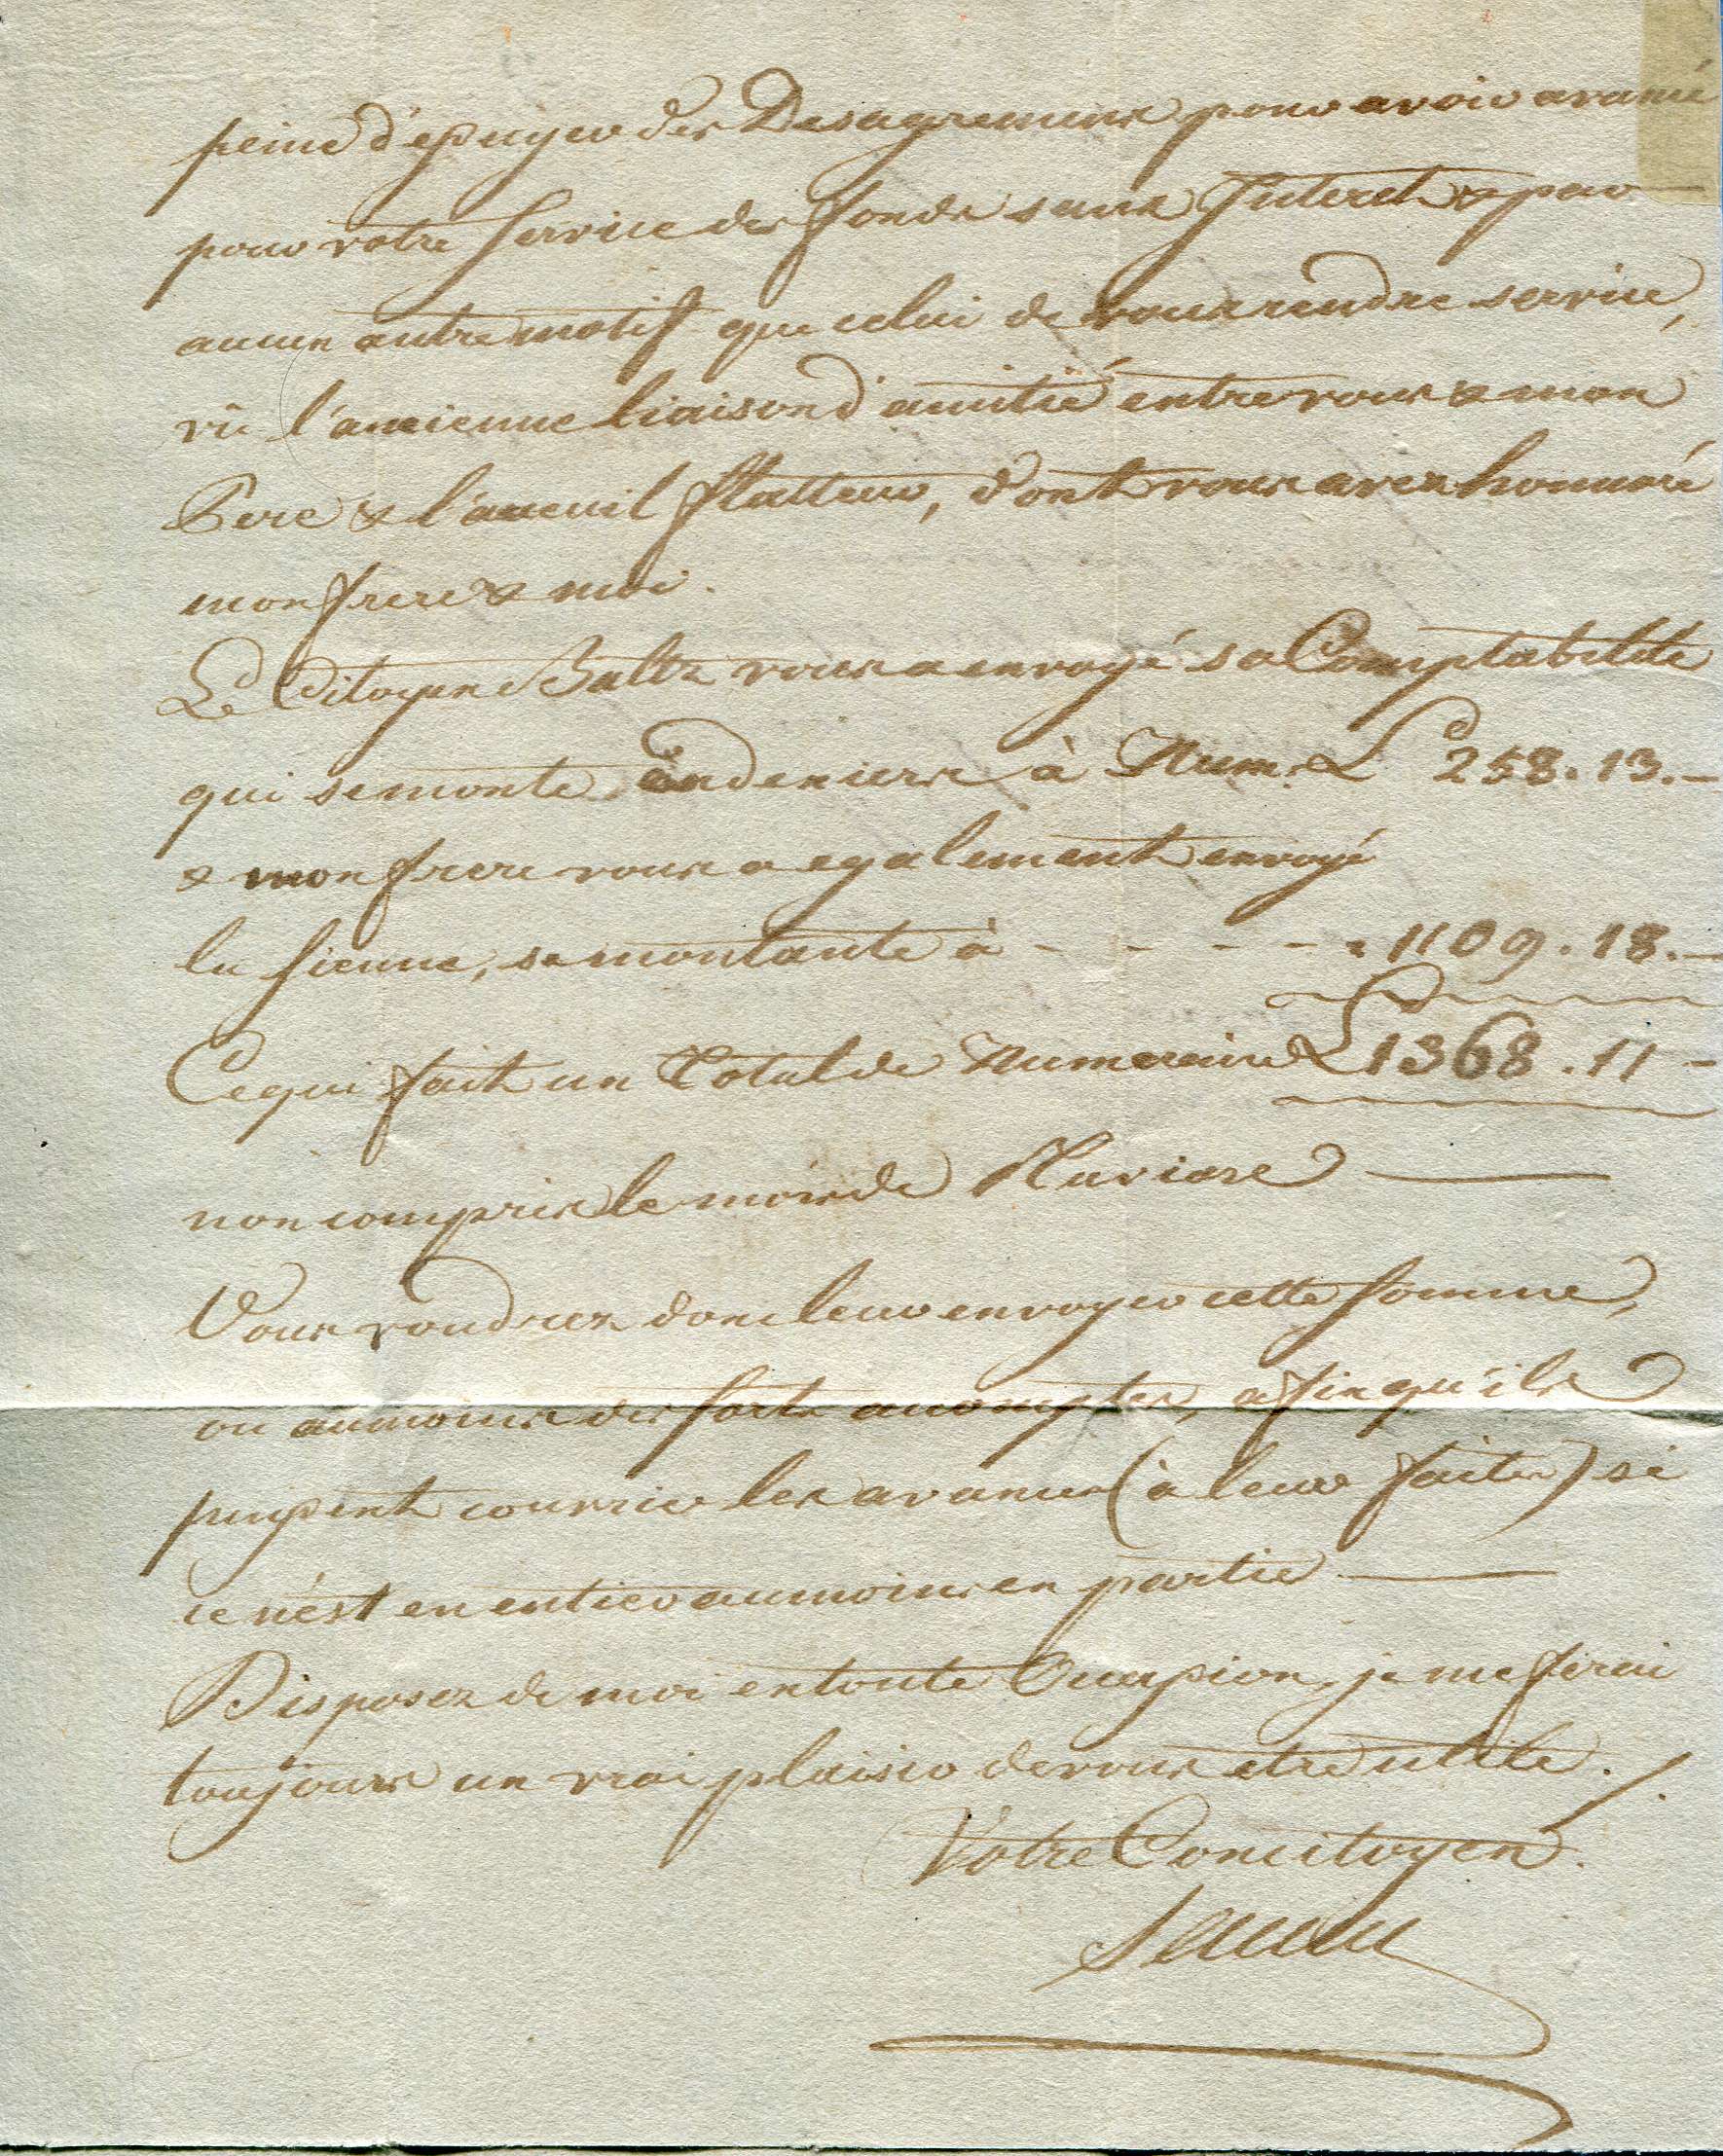 peine d'essuyer des Desagremens pour avoir avancé
pour votre service des fonds sans Interet & par
aucun autre motif que celui de vous rendre service,
vû l'ancienne liaison d'amitié entre vous & mon
Pere & l'acceuil flatteur, dont vous avez honnoré
mon frere & moi.
Le Citoyen Baltz vous a envoyé sa Comptabilité
qui se monte en deniers à Num. £ 258.13.-
& mon frere vous a egalement envoyé
la sienne, se montante à - - - - - . 1109.18.-
Ce qui fait un Total de Numeraire £ 1368.11 -
non compris le mois de Pluviose —
Vous voudrez donc leur envoyer cette somme,
ou aumoins des forts accomptes, afin qu'ils
puissent couvrir les avances (à leur faites) si
ce n'est en entier aumoins en partie —
Disposez de moi en toute Occassion, je me ferai
toujours un vrai plaisir de vous etre utile.
Votre Concitoyen.